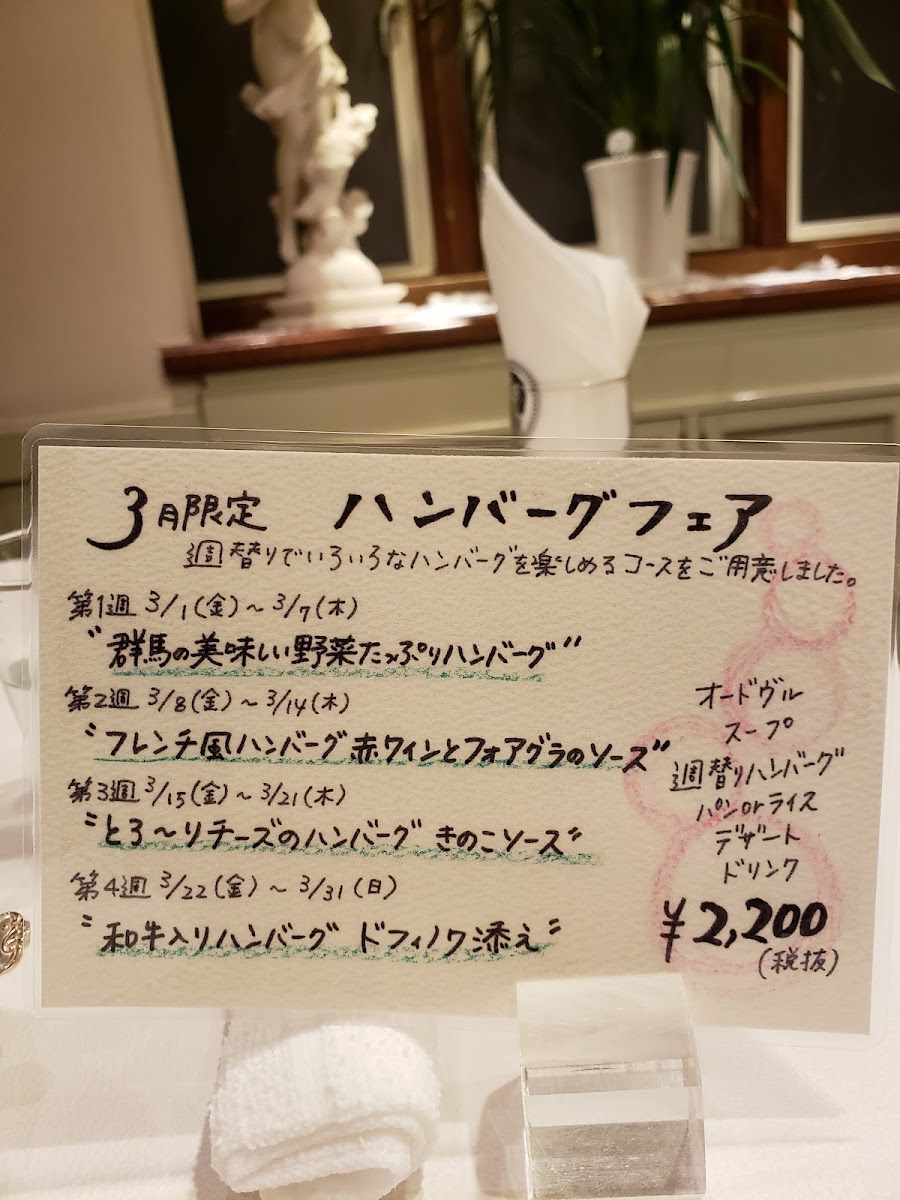 3月限定 ハンバーグフェア
週替りでいろいろなハンバーグを楽しめるコースをご用意しました。
第1週 3/1(金)～3/7(木)
"群馬の美味しい野菜たっぷりハンバーグ"
第2週 3/8(金)～3/14(木)
"フレンチ風ハンバーグ 赤ワインとフォアグラのソース"
第3週 3/15(金)～3/21(木)
"とろ～りチーズのハンバーグ きのこソース"
第4週 3/22(金)～3/31(日)
"和牛入りハンバーグ ドフィノワ添え"
オードヴル
スープ
週替りハンバーグ
パンorライス
デザート
ドリンク
¥2,200
(税抜)